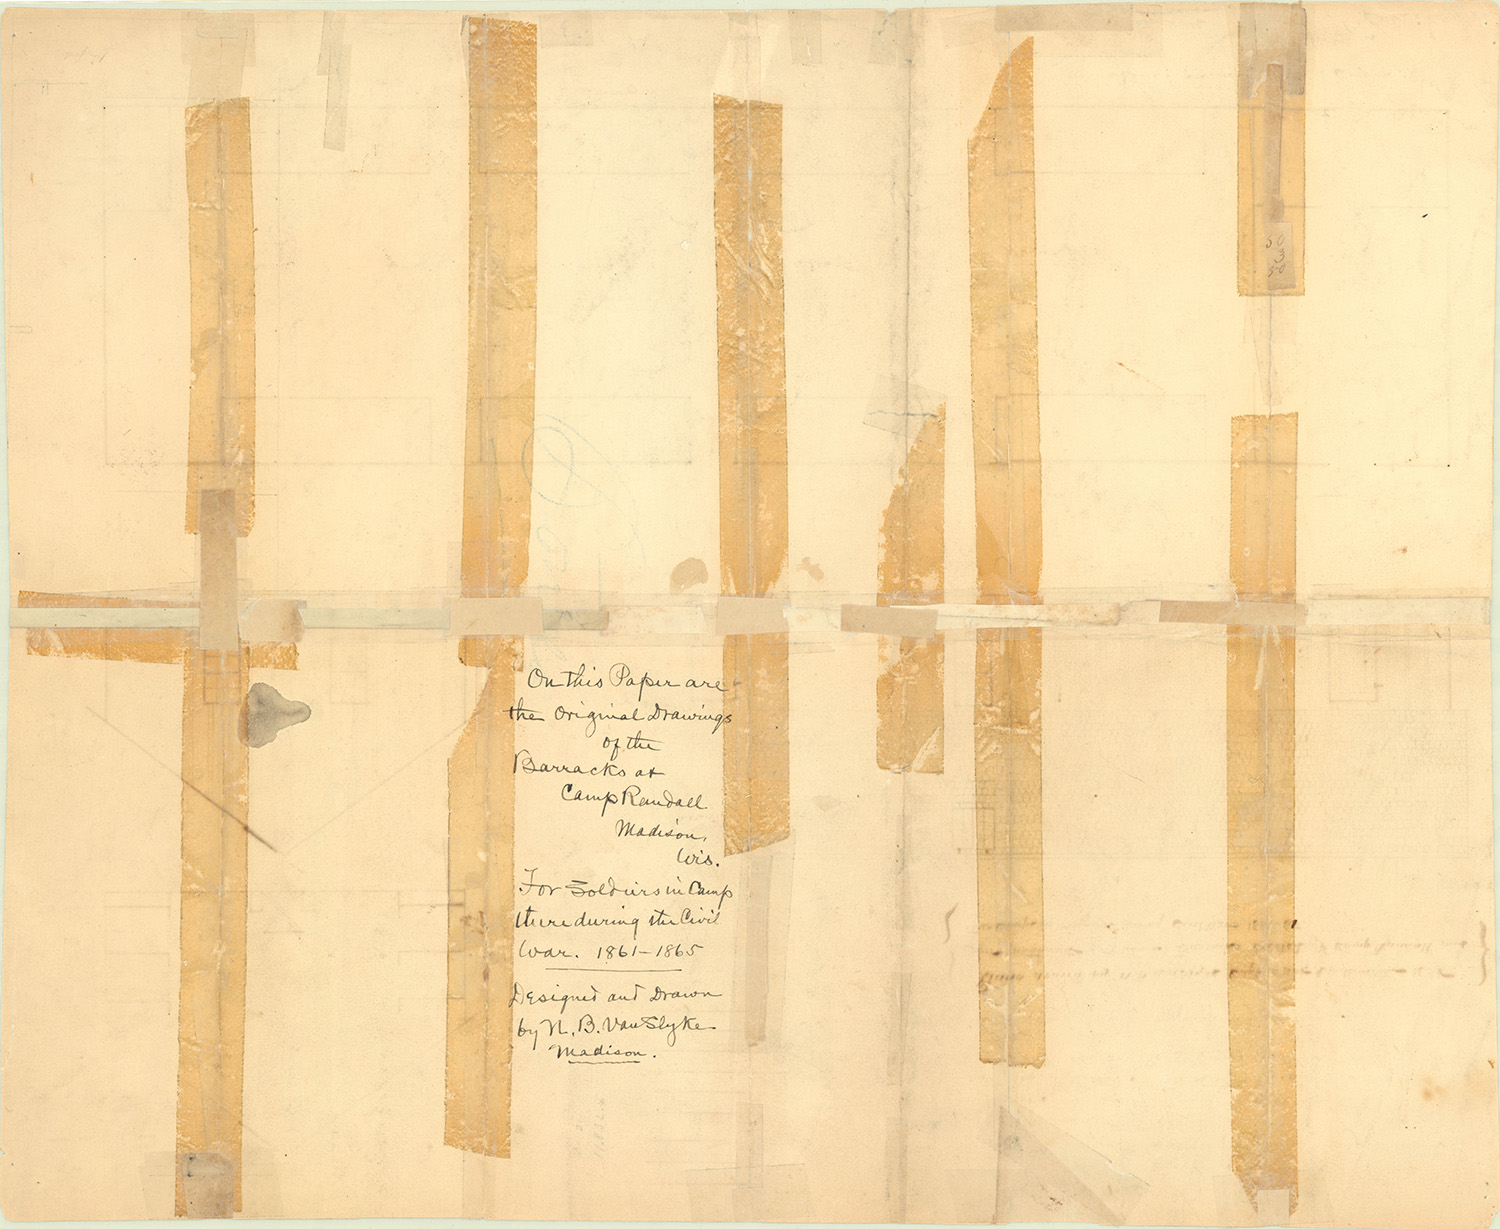 50
3
50
On this Paper are
the Original Drawings
of the
Barracks at
Camp Randall
Madison,
Wis.
For Soldiers in Camp
there during the Civil
War. 1861-1865
Designed and Drawn
by N. B. Van Slyke
Madison.